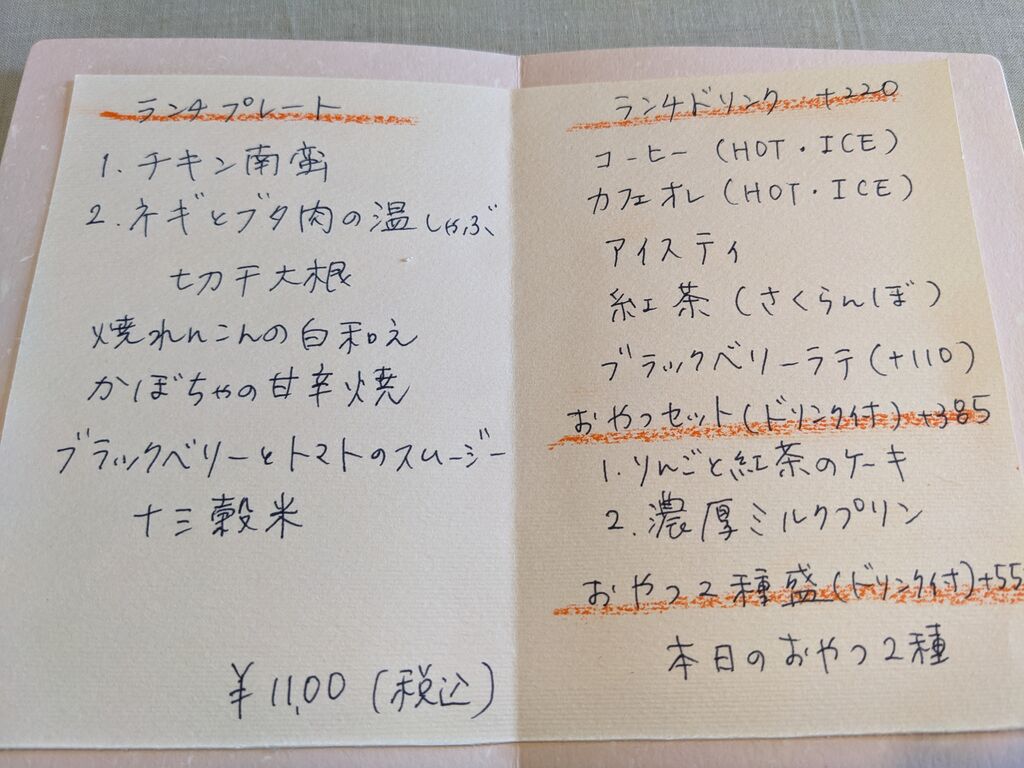 ランチプレート
1. チキン南蛮
2. ネギとブタ肉の温しゃぶ
切干大根
焼れんこんの白和え
かぼちゃの甘辛焼
ブラックベリーとトマトのスムージー
十三穀米
¥11,00 (税込)
ランチドリンク +220
コーヒー (HOT・ICE)
カフェオレ (HOT・ICE)
アイスティ
紅茶 (さくらんぼ)
ブラックベリーラテ (+110)
おやつセット (ドリンク付) +385
1. りんごと紅茶のケーキ
2. 濃厚ミルクプリン
おやつ2種盛 (ドリンク付) +55
本日のおやつ2種